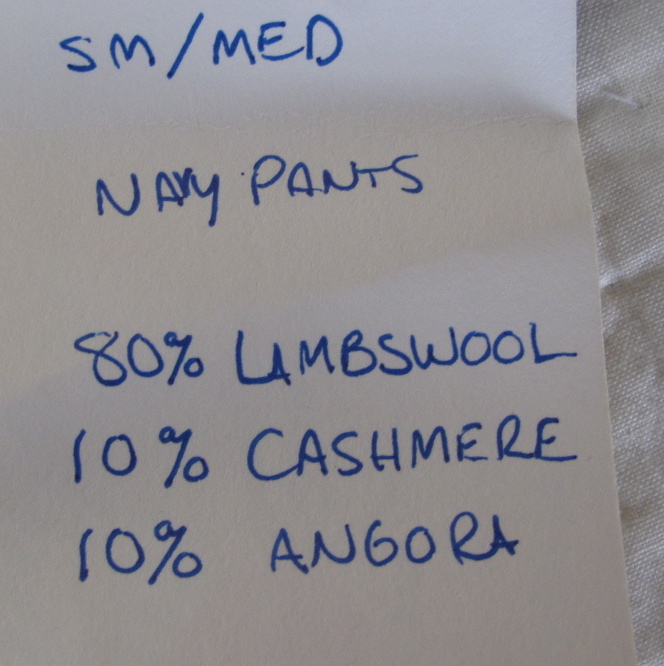 SM/MED
NAVY PANTS
80% LAMBSWOOL
10% CASHMERE
10% ANGORA